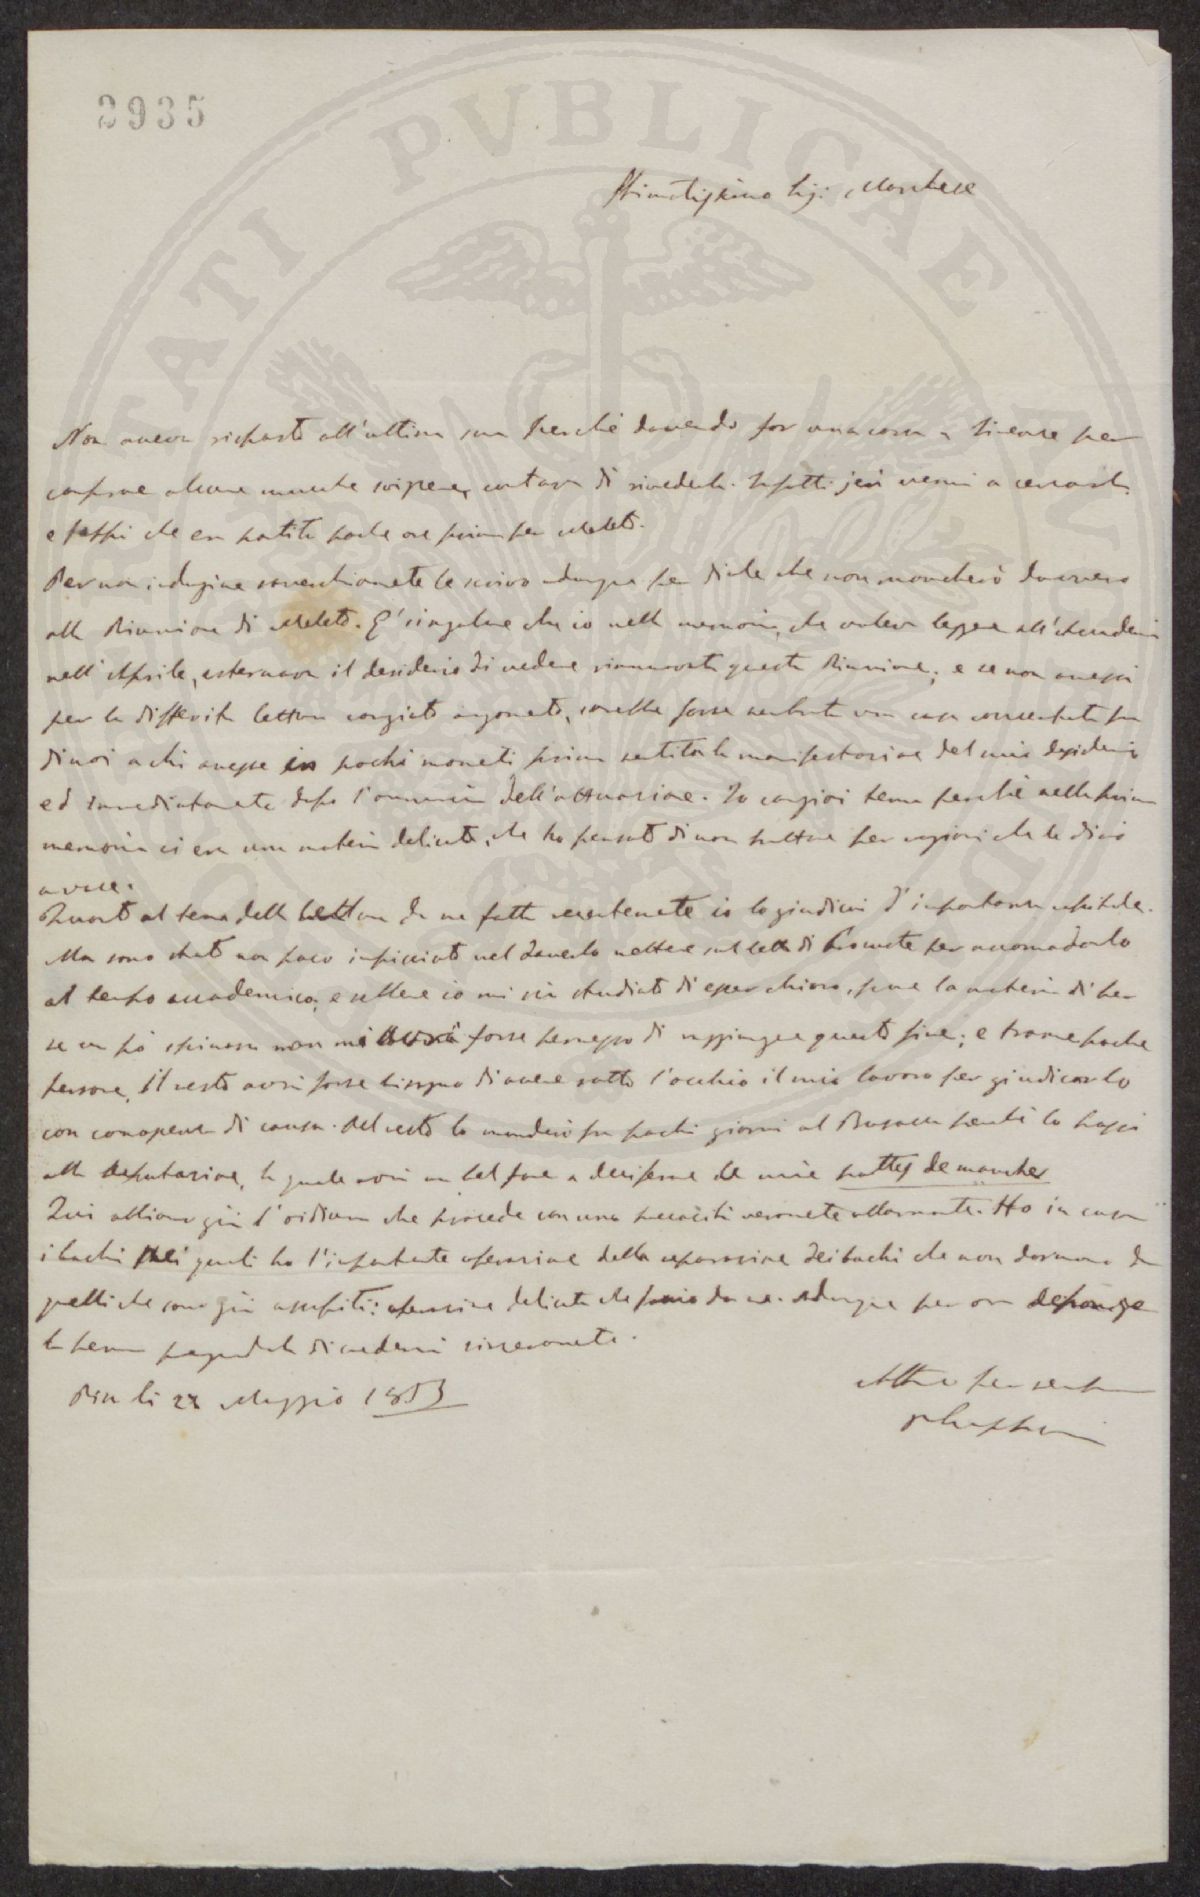 2935
PVBLICAE
Stimatissimo Sig: Marchese
Non aveva risposto all'ultima sua perchè dovendo far una corsa a Firenze per
alcune contava di rivederla. Infatti jeri venni a cercarla
e seppi che era partita poche ore prima per Meleto.
Per non indugiare le scrivo adunque per dirle che non mancherò davvero
alla Riunione di Meleto. E' singolare che io nella memoria, che voleva leggere all'Accademia
nell'Aprile, esternava il desiderio di vedere rinnovata questa Riunione; e se non avessi
per la differita lettura cangiato argomento, sarebbe forse sembrata una cosa concertata fra
di noi a chi avesse in pochi momenti prima sentita la manifestazione del mio desiderio
ed immediatamente dopo l'annunzio dell'attuazione. Io cangiai tema perchè nella prima
memoria ci era una materia delicata, che ho pensato di non trattare per ragioni che le dirò
a voce.
Quanto al tema della lettura da me fatta recentemente io lo giudicai d'importanza capitale.
Ma sono stato non poco impicciato nel doverlo mettere sul letto di Procuste per accomodarlo
al tempo accademico; e sebbene io mi sia studiato di esser chiaro, pure la materia di per
se un po' spinosa non mi avrà forse permesso di raggiungere questo fine; e tranne poche
persone, il resto avrà forse bisogno di avere sotto l'occhio il mio lavoro per giudicarlo
con conoscenza di causa. Del resto lo manderò fra pochi giorni al perchè lo passi
alla deputazione, la quale avrà un bel fare a deciferare le mie pattes de mouches
Qui abbiamo già l'oidium che procede con una veramente allarmante. Ho in casa
i bachi pei quali ho l'importante operazione della separazione dei bachi che non dormono da
quelli che sono già assopiti: operazione delicata che faccio da me. Adunque per ora
la penna pregandola di credermi sinceramente.
Pisa li 22 Maggio 1853